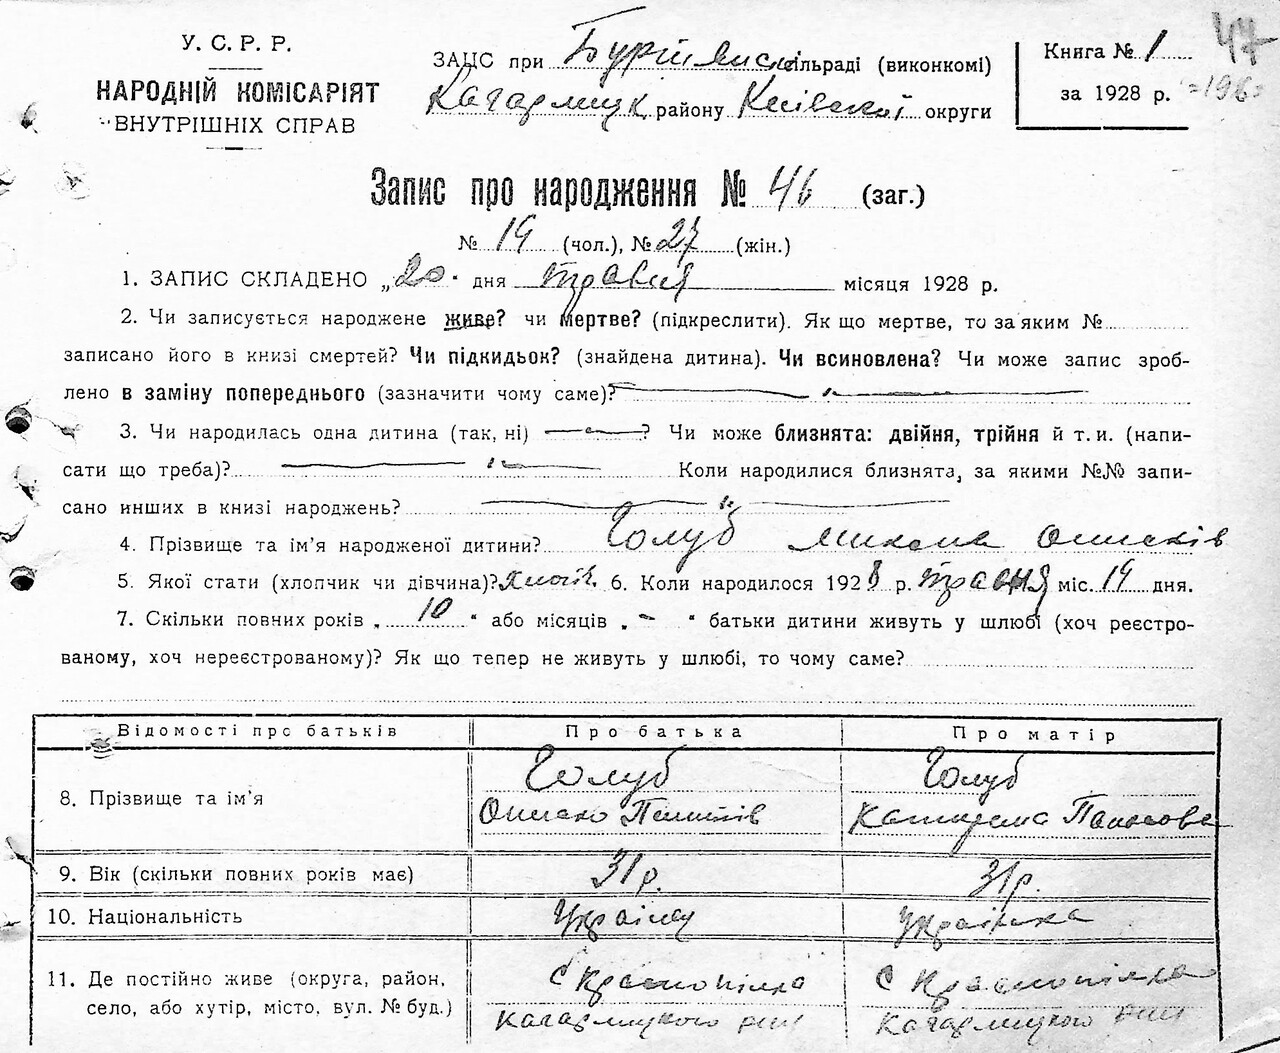 У. С. Р. Р.
НАРОДНІЙ КОМІСАРІЯТ
ВНУТРІШНІХ СПРАВ
ЗАЦС при сільраді (виконкомі)
Кагарлицк району Київської округи
Книга № 1
за 1928 р.
47
Запис про народження № 46 (заг.)
№ 19 (чол.), № 27 (жін.)
1. ЗАПИС СКЛАДЕНО „20“ дня травня місяця 1928 р.
2. Чи записується народжене живе? чи мертве? (підкреслити). Як що мертве, то за яким №
записано його в книзі смертей? Чи підкидьок? (знайдена дитина). Чи всиновлена? Чи може запис зроб-
лено в заміну попереднього (зазначити чому саме)?
3. Чи народилась одна дитина (так, ні) ? Чи може близнята: двійня, трійня й т. и. (напи-
сати що треба)? Коли народилися близнята, за якими №№ запи-
сано инших в книзі народжень?
4. Прізвище та ім'я народженої дитини? Голуб Микола
5. Якої стати (хлопчик чи дівчина)? Хлопч. 6. Коли народилося 1928 р. травня міс. 19 дня.
7. Скільки повних років „ 10 “ або місяців „ - “ батьки дитини живуть у шлюбі (хоч реєстро-
ваному, хоч нереєстрованому)? Як що тепер не живуть у шлюбі, то чому саме?
Відомості про батьків Про батька Про матір
8. Прізвище та ім'я Голуб Голуб
Катерина
9. Вік (скільки повних років має) 31 р. 31 р.
10. Національність Україн Українка
11. Де постійно живе (округа, район, с Краснопілка с Краснопілка
село, або хутір, місто, вул. № буд.) Кагарлицкого Кагарлицкого